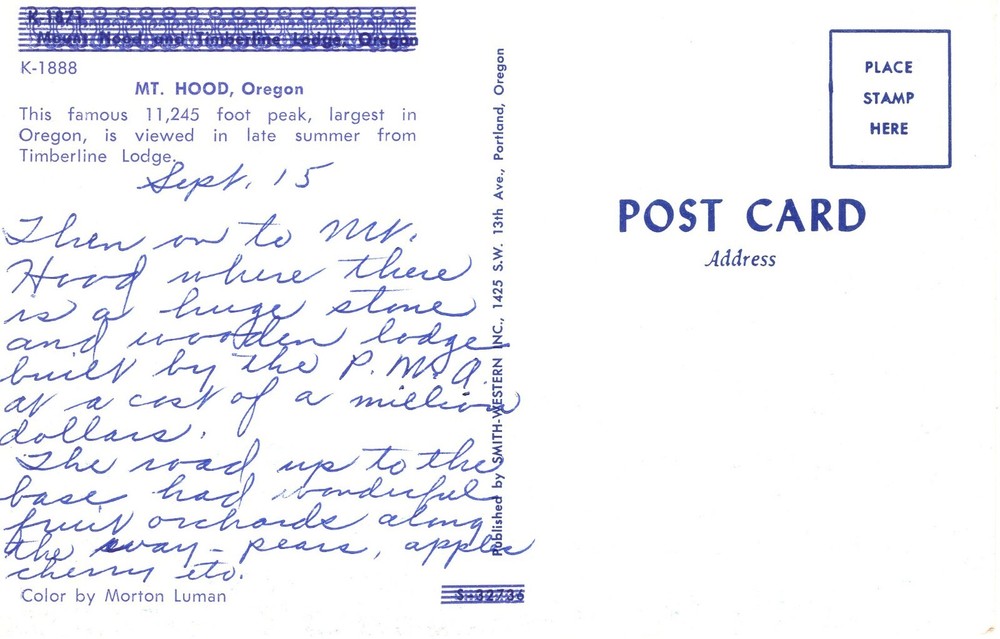 K-1877
Mount Hood and Timberline Lodge, Oregon
K-1888
MT. HOOD, Oregon
This famous 11,245 foot peak, largest in
Oregon, is viewed in late summer from
Timberline Lodge.
Sept. 15
Then on to Mt.
Hood where there
is a huge stone
and wooden lodge
built by the P.W.A.
at a cost of a million
dollars.
The road up to the
base had wonderful
fruit orchards along
the way – pears, apples
cherry etc.
Color by Morton Luman
S-32736
Published by SMITH-WESTERN INC., 1425 S.W. 13th Ave., Portland, Oregon
PLACE
STAMP
HERE
POST CARD
Address